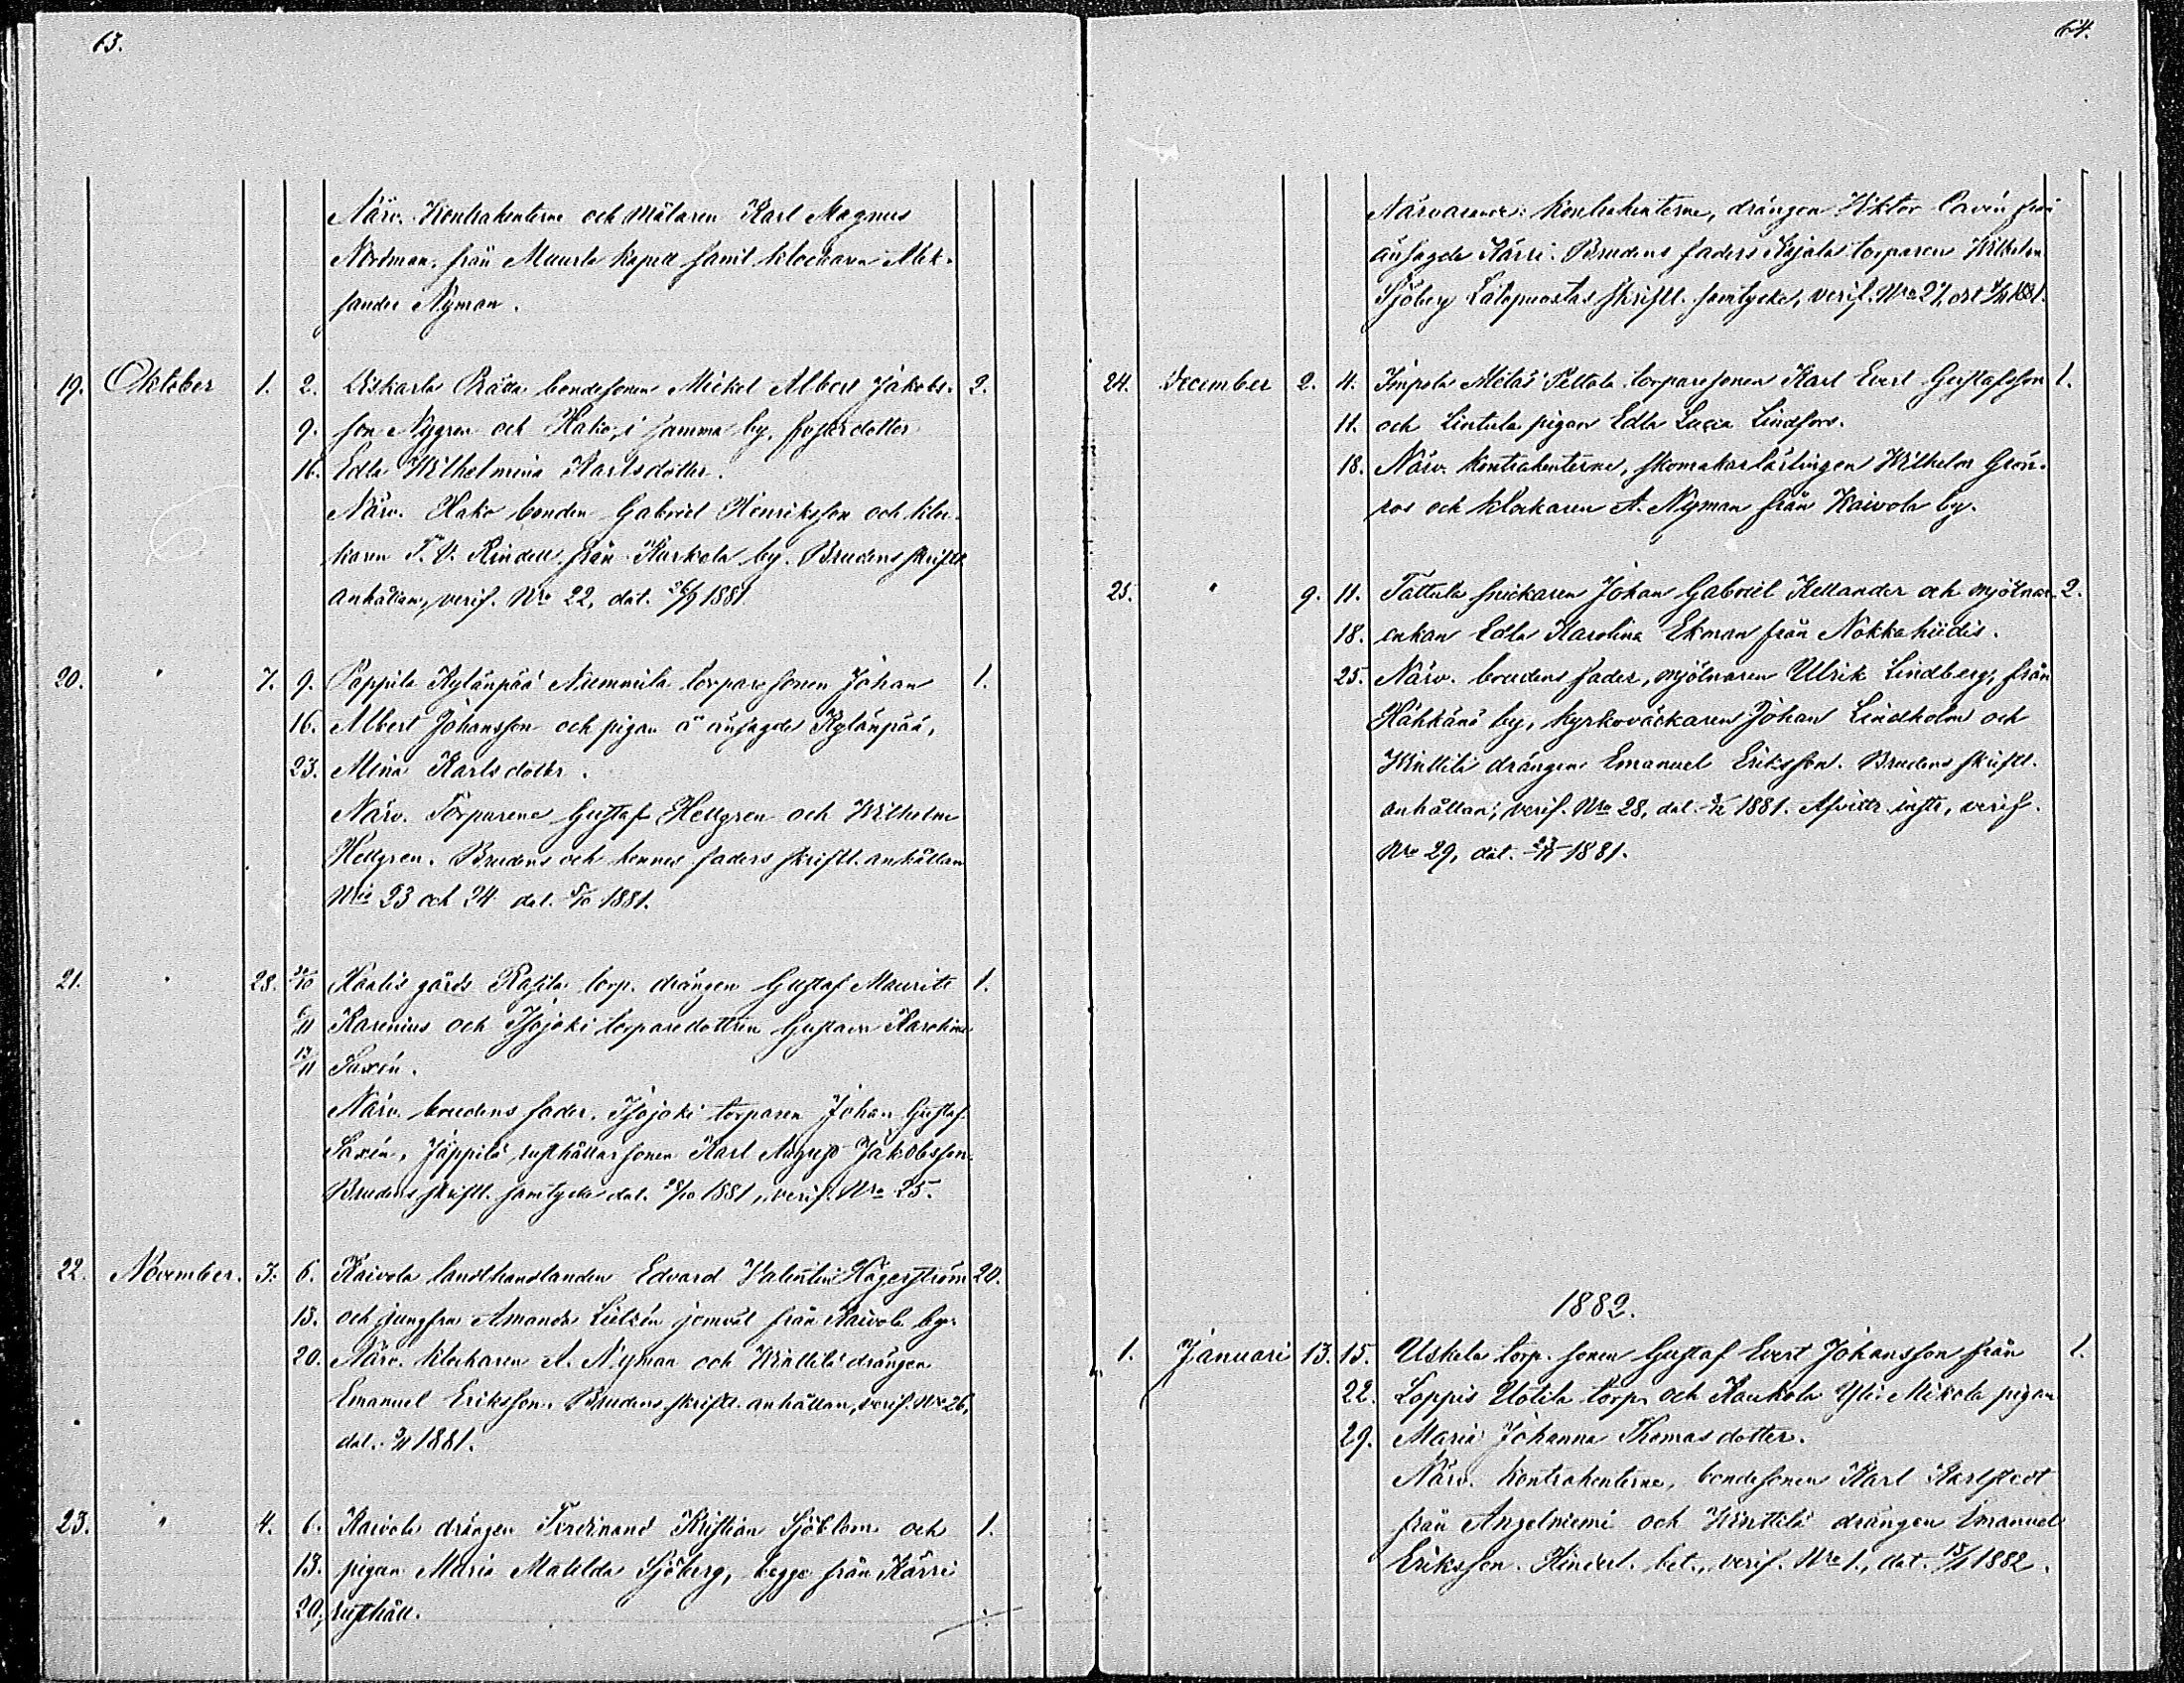 63.
Närv. Kontrahenterne och Målaren Karl Magnus
Nordman från Muurla kapell samt klockaren Alek-
sander Nyman.
19. Oktober 1. 2. Wiskarla Prätta bondesonen Mickel Albert Jakobs- 2.
9. son Nygren och Hako, i samma by, fosterdotter
16. Edla Wilhelmina Karlsdotter.
Närv. Hako bonden Gabriel Henriksson och kloc-
karen F. V. Rindell från Karkola by. Brudens skriftl.
anhållan, verif. Nro 22, dat. 26/9 1881.
20. " 7. 9. Pappila Kylänpää Niemmilä torparesonen Johan 1.
16. Albert Johansson och pigan å änsagde Kylänpää,
23. Mina Karlsdotter.
Närv. Torparene Gustaf Hellgren och Wilhelm
Hellgren. Brudens och hennes faders skriftl. anhållan
Nris 23 och 24 dat. 5/10 1881.
21. " 28. 30/10 Kaalis gårds Rasila torp. drängen Gustaf Maurits 1.
6/11 Karenius och Isojoki torparedottren Gustava Karolina
13/11 Saxén.
Närv. brudens fader, Isojoki torparen Johan Gustaf
Saxén, Jäppilä rusthållarsonen Karl August Jakobsson.
Brudens skriftl. samtycke dat. 28/10 1881, verif. Nro 25.
22. November. 3. 6. Kaivola landthandlanden Edvard Valentin Hägerström 20.
13. och jungfrun Amanda jemväl från Kaivola by.
20. Närv. klockaren A. Nyman och Winttilä drängen
Emanuel Eriksson. Brudens skriftl. anhållan, verif. Nro 26,
dat. 3/11 1881.
23. " 4. 6. Kaivola drängen Ferdinand Kristian Sjöblom och 1.
13. pigan Maria Matilda Sjöberg, begge från Kärri
20. rusthåll.
64.
Närvarande: Kontrahenterne, drängen Viktor från
änsagde Kärri. Brudens faders Kajala torparen Wilhelm
Sjöberg skriftl. samtycke, verif. Nro 27, dat 1881.
24. December 2. 4. Impola Mellola torparesonen Karl Evert Gustafsson 1.
11. och Lintula pigan Edla Lucia Lindfors.
18. Närv. kontrahenterne, skomakarlärlingen Wilhelm Grön-
roos och klockaren A. Nyman från Kaivola by.
25. " 9. 11. Tattula snickaren Johan Gabriel Hellander och mjölnar- 2.
18. enkan Edla Karolina Ekman från Nokkahiidis.
25. Närv. brudens fader, mjölnaren Ulrik Lindberg, från
Hähkänä by, kyrkoväcktaren Johan Lindholm och
Winttilä drängen Emanuel Eriksson. Brudens skriftl.
anhållan, verif. Nro 28, dat. 9/12 1881. Afvittr. instr., verif.
Nro 29, dat. 1881.
1882.
1. Januari 13. 15. Uskela torp. sonen Gustaf Evert Johansson från 1.
22. Loppis Uotila torp. och Kaukola Yli-Mikola pigan
29. Maria Johanna Thomasdotter.
Närv. kontrahenterne, bondesonen Karl Karlstedt
från Angelniemi och Winttilä drängen Emanuel
Eriksson. Hinderl. bet., verif. Nro 1., dat. 1882.